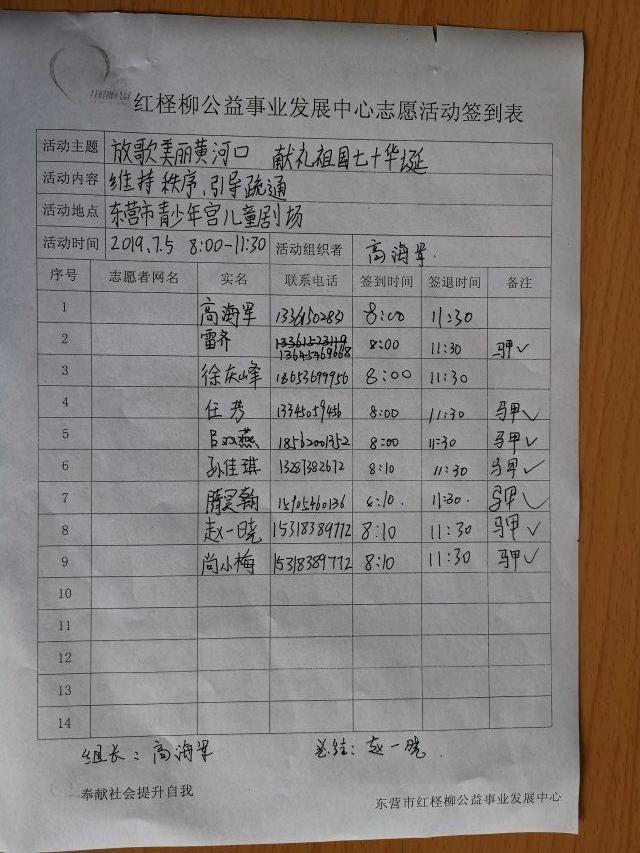 红柽柳公益事业发展中心志愿活动签到表
活动主题 放歌美丽黄河口 献礼祖国七十华诞
活动内容 维持秩序、引导疏通
活动地点 东营市青少年宫儿童剧场
活动时间 2019.7.5 8:00-11:30 活动组织者 高海军.
序号 志愿者网名 实名 联系电话 签到时间 签退时间 备注
1 高海军 13361502831 8:00 11:30
2 雷齐 13645469668 8:00 11:30 马甲✓
3 徐庆峰 18653699956 8:00 11:30
4 任芳 13345059456 8:00 11:30 马甲✓
5 吕双燕 18562001352 8:00 11:30 马甲✓
6 孙佳琪 13287382672 8:10 11:30 马甲✓
7 隋昊翰 15905460136 8:10. 11:30. 马甲✓
8 赵一晓 15318389772 8:10 11:30 马甲✓
9 尚小梅 15318389772 8:10 11:30 马甲✓
10
11
12
13
14
组长:高海军 总结:赵一晓.
奉献社会提升自我 东营市红柽柳公益事业发展中心